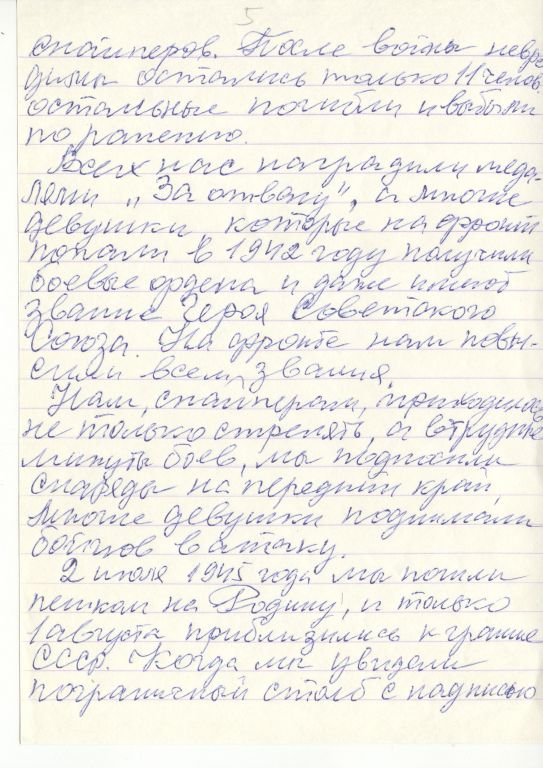 5
снайперов. После войны невре
димы остались только 11 челов.
остальные погибли и выбыли
по ранению.
Всех нас наградили меда-
лями „За отвагу", а многие
девушки, которые на фронт
попали в 1942 году получили
боевые ордена и даже имеют
звание Героя Советского
Союза. На фронте нам повы-
сили всем звания.
Нам, снайперам, приходилось
не только стрелять, а в трудные
минуты боев, мы подносили
снаряды на передний край,
многие девушки поднимали
бойцов в атаку.
2 июля 1945 года мы пошли
пешком на Родину, и только
1 августа приблизились к границе
СССР. Когда мы увидели
пограничный столб с надписью